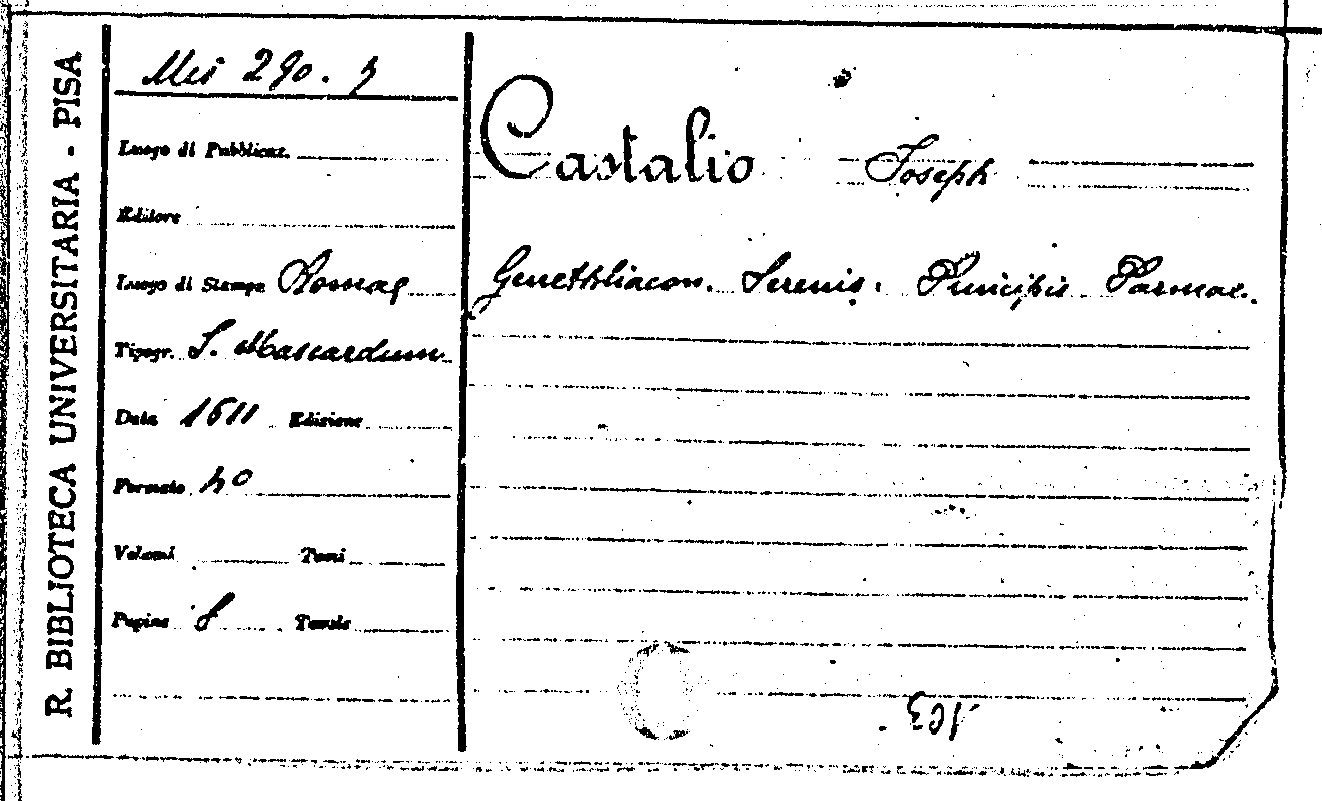 R. BIBLIOTECA UNIVERSITARIA - PISA
Mis 290. 3
Luogo di Pubblicaz.
Editore
Luogo di Stampa Romae
Tipogr. J. Mascardum
Data 1611 Edizione
Formato 4°
Volumi Tomi
Pagine 8 Tavole
Castalio Joseph
Genethliacon. Serenis. Principis Parmae.
103